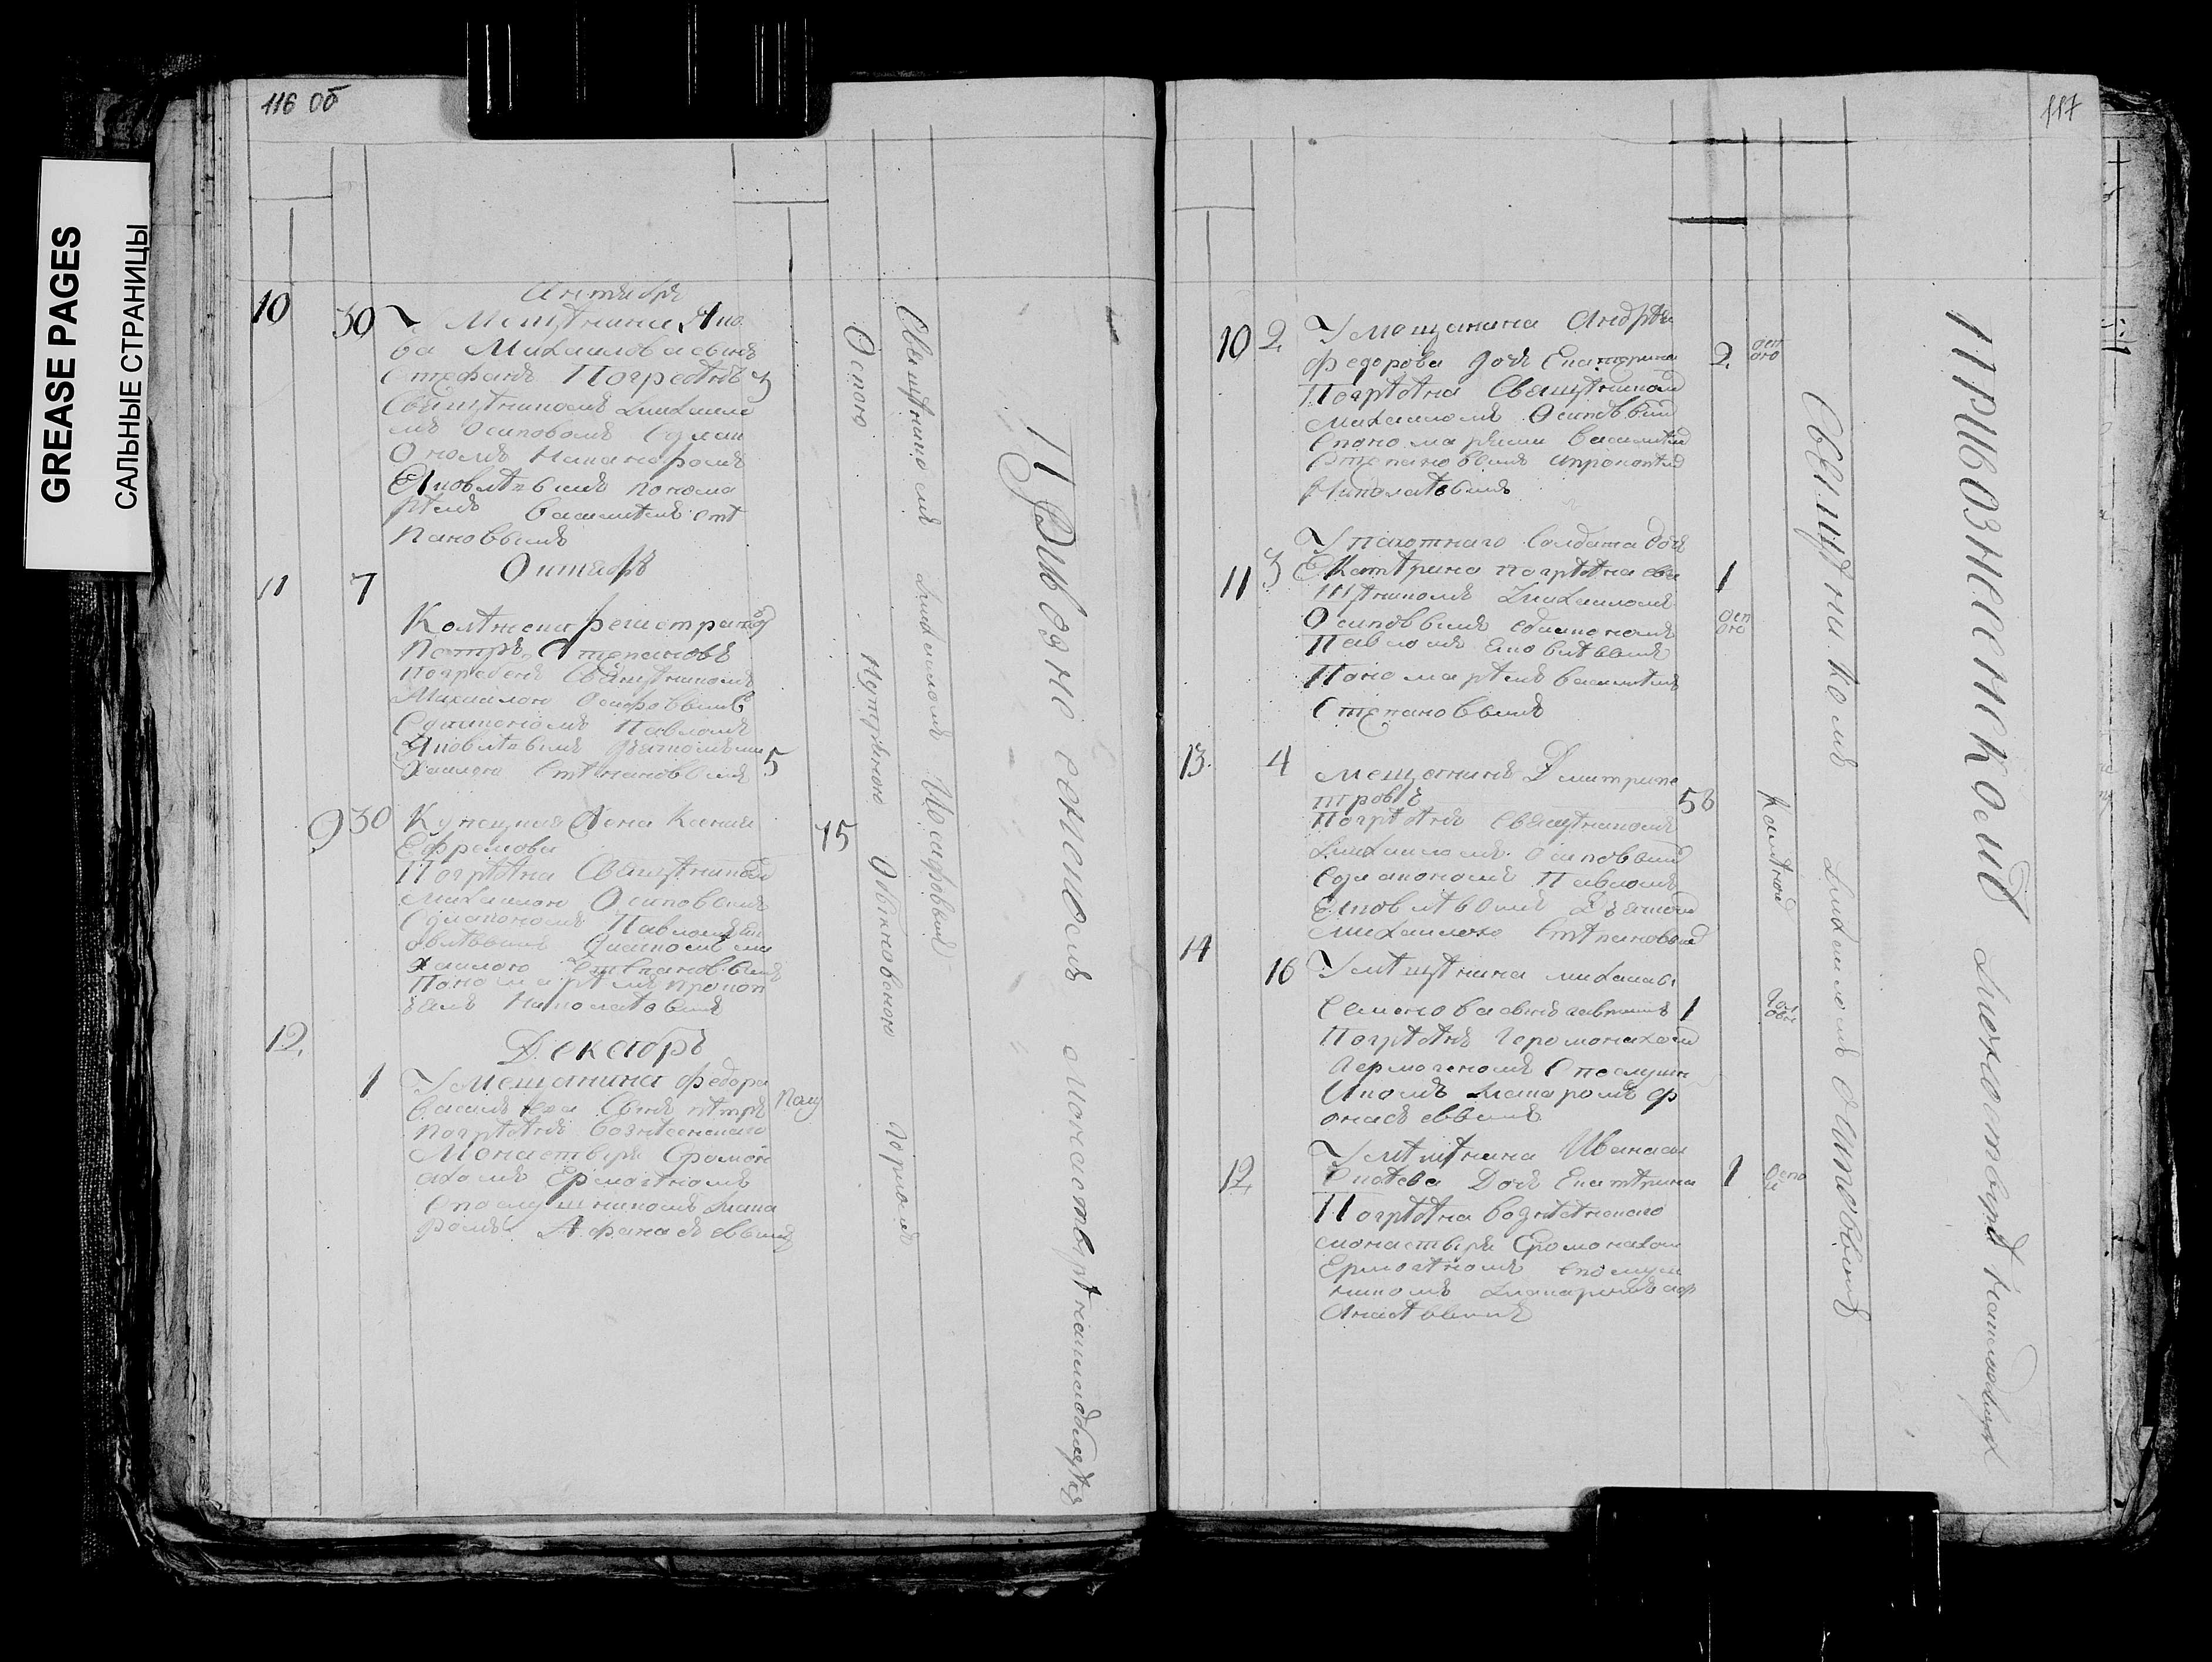 GREASE PAGES
САЛЬНЫЕ СТРАНИЦЫ
116 об
10 30 Мещанина Яко
ва Михаилова сынъ
Стефанъ Погребенъ 3
Священникомъ Михаило
мъ Осиповомъ Сдиак
ономъ Никанфромъ
Яковлевымъ понома
ремъ Василиемъ Сте
пановымъ
Оспою
Октябрь
11 7
Колежски регистраторъ
Петръ Степановъ
погребенъ Священникомъ
Михаилою Осиповымъ
Сдиакономъ Павломъ
Яковлевымъ дьячкомъ ми
хаилою Степановымъ 5
9 30 Купецкая жена Ксения
Ефремова 75
Погребена Священникомъ
Михаилою Осиповымъ
Сдиакономъ Павломъ Як
овлевымъ дьячкомъ ми
хаилою Степановымъ
Пономаремъ прокоп
Николаевымъ
Обыкновенною
12 Декабрь
1 У Мещанина федора
Васильева Сынъ петръ
погребенъ вознесенскаго
Монастыря Еромон
ахомъ Ермогеномъ
Спослушникомъ Мака
ромъ Афанасьевымъ
Священникомъ Михаиломъ Иосифовымъ
При Вознесенскомъ Монастыре на кладбище
117
10 2 У мещанина Андрея
федорова дочь Екатерина 2
Погребена Священникомъ
Михаиломъ Осиповымъ
Спономарями Василиемъ
Степановымъ ипрокопиемъ
Николаевымъ
У пахотнаго Солдата дочь
11 3 Екатерина погребена свя 1
щенникомъ Михаиломъ
Осиповымъ сдиакономъ
Павломъ Яковлевымъ
Пономаремъ василиемъ
Степановымъ
13 4 Мещанинъ Дмитри пе
тровъ
Погребенъ Священникомъ
Михаиломъ Осиповымъ
Сдиакономъ Павломъ
Яковлевымъ Дьячкомъ
Михаилою Степановымъ
14
16 У мещанина михаила
Семенова сынъ 1
Погребенъ Iеромонахомъ
Aермогеномъ Спослушн
икомъ Макаромъ аф
онасьевымъ
У мещанина Ивана
12 дочь Екатерина 1
Погребена вознесенскаго
монастыря Еромонахом
Ермогеномъ Спослуш
никомъ Макаромъ аф
анасевымъ
Священникомъ Михаиломъ Осиповымъ
При вознесенскомъ Монастыре